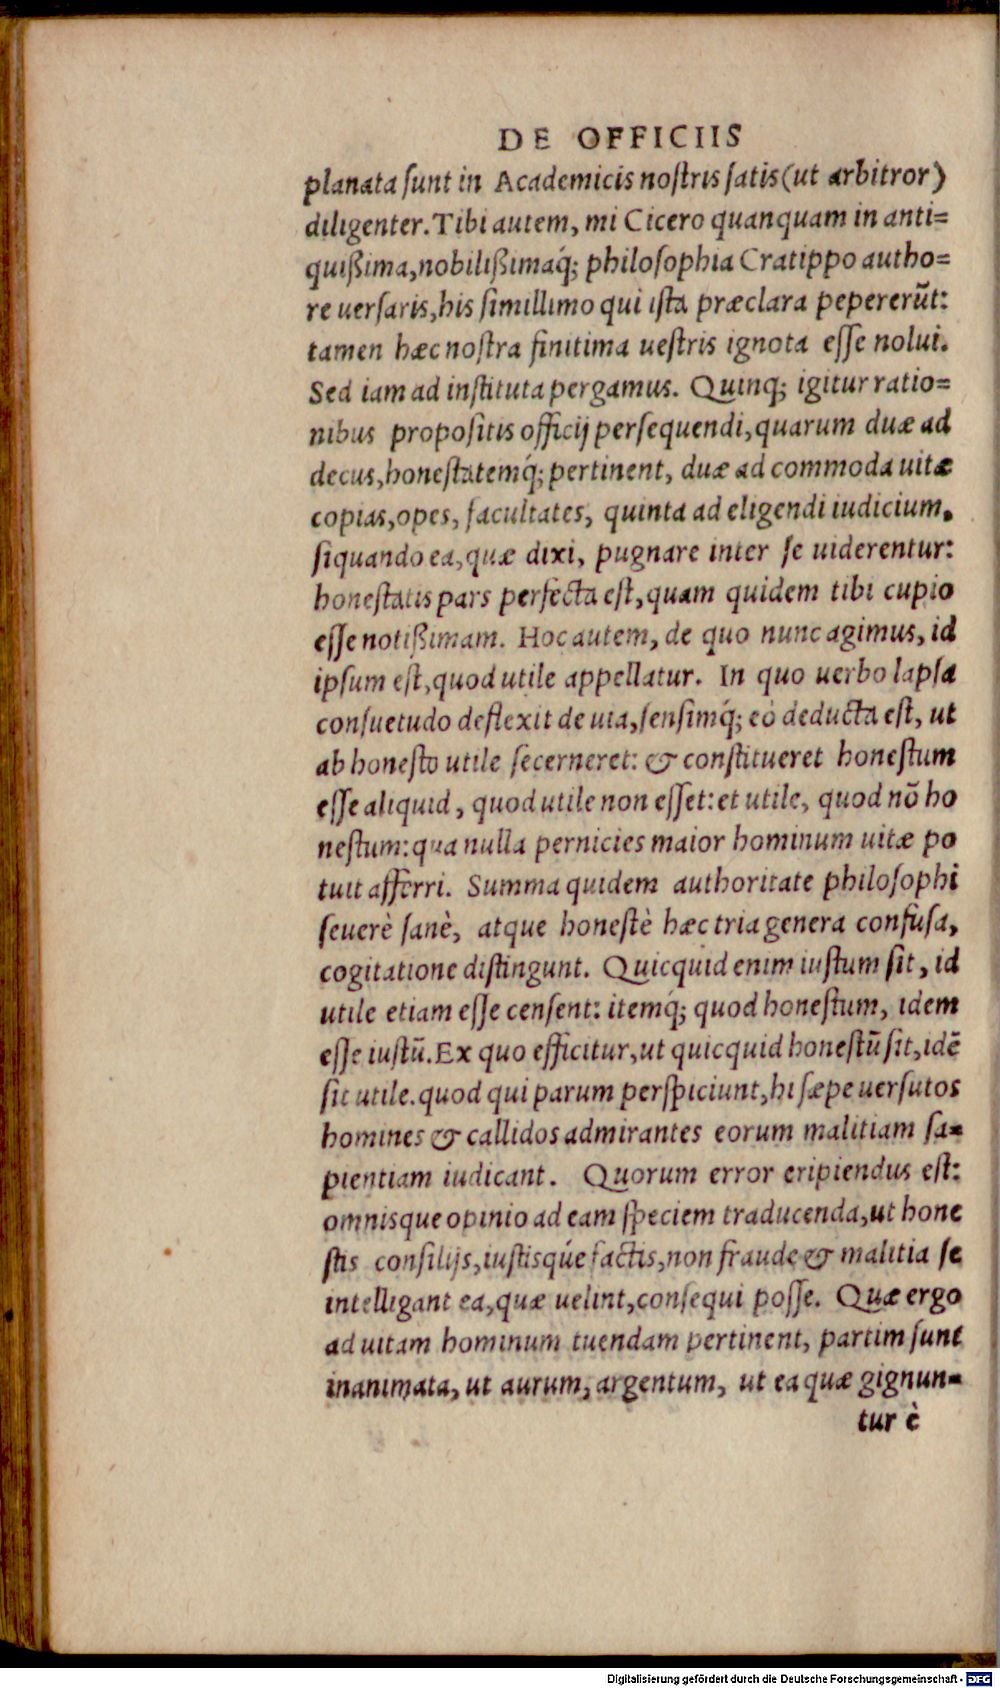 DE OFFICIIS
planata ſunt in Academicis noſtris ſatis (ut arbitror)
diligenter. Tibi autem, mi Cicero quanquam in anti=
quißima, nobilißimaq́; philoſophia Cratippo autho=
re uerſaris, his ſimillimo qui iſta præclara pepererũt:
tamen hæc noſtra finitima ueſtris ignota eſſe nolui.
Sed iam ad inſtituta pergamus. Quinq; igitur ratio=
nibus propoſitis officij perſequendi, quarum duæ ad
decus, honeſtatemq́; pertinent, duæ ad commoda uitæ
copias, opes, facultates, quinta ad eligendi iudicium.
ſiquando ea, quæ dixi, pugnare inter ſe uiderentur:
honeſtatis pars perfecta eſt, quam quidem tibi cupio
eſſe notißimam. Hoc autem, de quo nunc agimus, id
ipſum eſt, quod utile appellatur. In quo uerbo lapſa
conſuetudo deflexit de uia, ſenſimq́; eò deducta eſt, ut
ab honeſto utile ſecerneret: & conſtitueret honeſtum
eſſe aliquid, quod utile non eſſet: et utile, quod nõ ho
neſtum: qua nulla pernicies maior hominum uitæ po
tuit afferri. Summa quidem authoritate philoſophi
ſeuerè ſanè, atque honeſtè hæc tria genera confuſa,
cogitatione diſtingunt. Quicquid enim iuſtum ſit, id
utile etiam eſſe cenſent: itemq́; quod honeſtum, idem
eſſe iuſtũ. Ex quo efficitur, ut quicquid honeſtũ ſit, idẽ
ſit utile. quod qui parum perſpiciunt, hi ſæpe uerſutos
homines & callidos admirantes eorum malitiam ſa=
pientiam iudicant. Quorum error eripiendus eſt:
omnisque opinio ad eam ſpeciem traducenda, ut hone
ſtis conſilijs, iuſtisq́ue factis, non fraude & malitia ſe
intelligant ea, quæ uelint, conſequi poſſe. Quæ ergo
ad uitam hominum tuendam pertinent, partim ſunt
inanimata, ut aurum, argentum, ut ea quæ gignun=
tur è
Digitalisierung gefördert durch die Deutsche Forschungsgemeinschaft - DFG